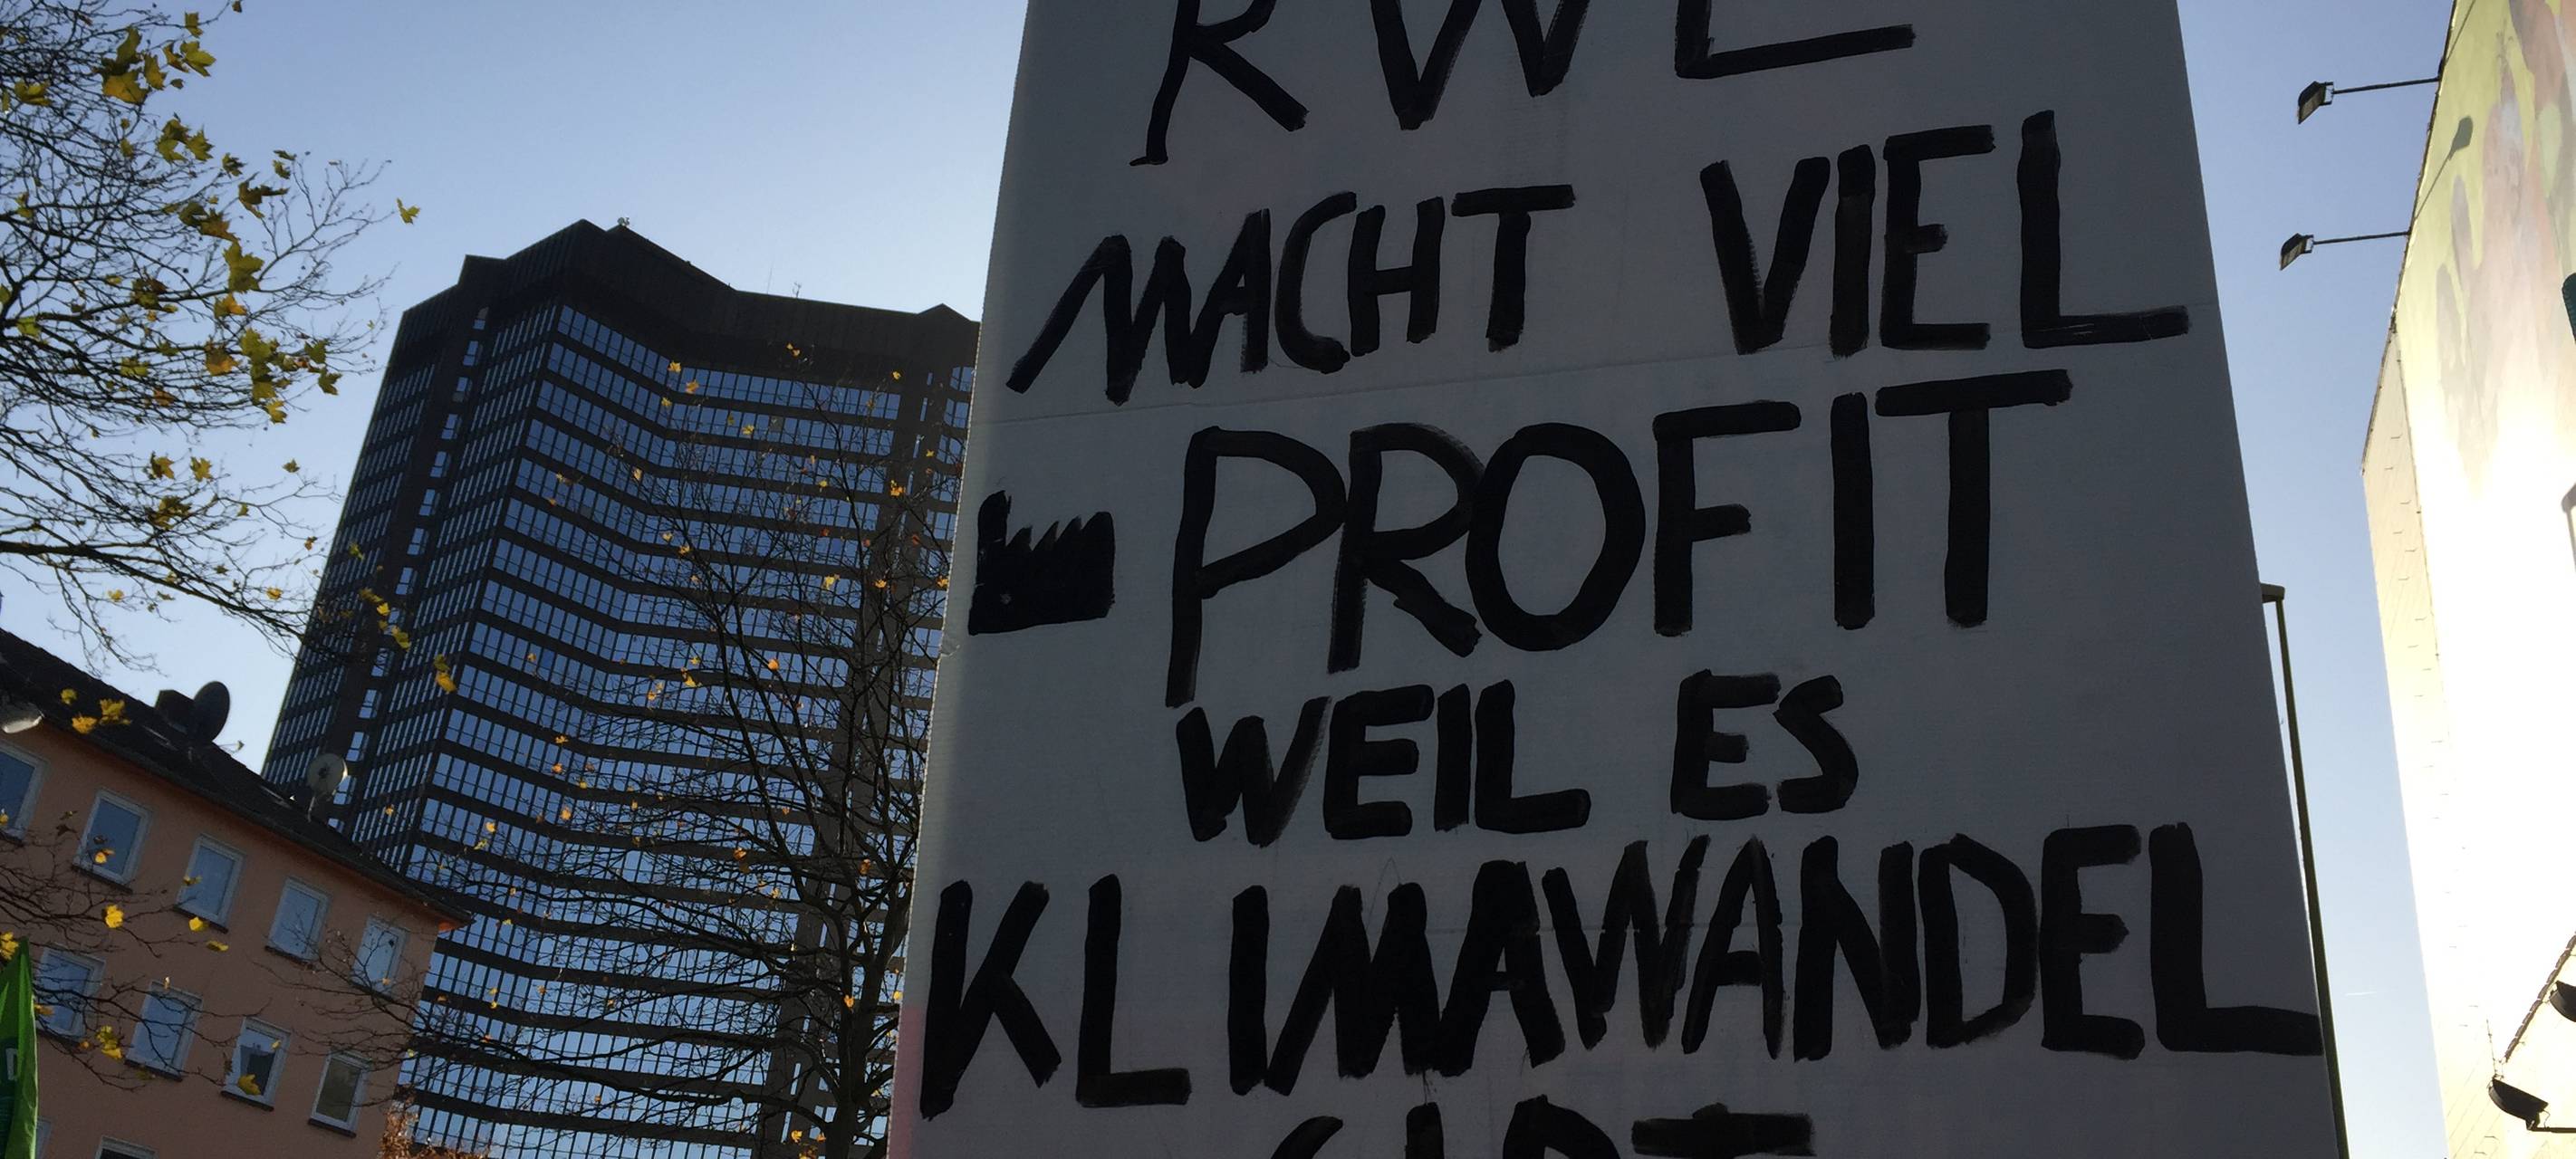 RWE
MACHT VIEL
PROFIT
WEIL ES
KLIMAWANDEL
GIBT